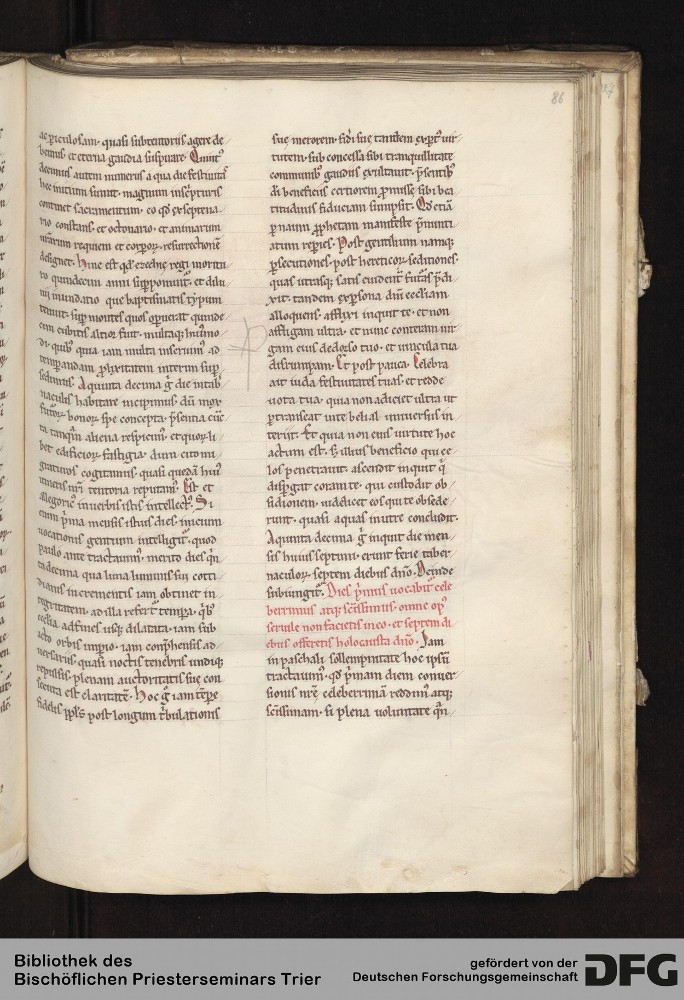 86
ac ꝑiculosam· quasi subtentoriis agere de
bemus· et eterna gaudia suspirare· Quint᷒
decimus autem numerus a qua die festiuitas
hec initium sumit· magnum inscripturis
continet sacramentum· eo qđ ex septena
rio constans· et octonario· et animarum
nr̄arum requiem et corpoꝝ· resurrectionē
designet· Hinc est qđ ezechie regi moritu
ro quindecim anni supponunt᷒· et dilu
uii inundatio que baptismatis typum
tenuit· suꝑ montes quos operuerat quinde
cim cubitis altior fuit· multaq; hui᷒mo
di· quib᷒ quia iam multa inseruim᷒· ad
temperandam ꝓlixitatem interim sup
sedimus· Aquinta decima g̊ die intab
naculis habitare incipimus· dū mox
futuroꝝ bonoꝝ spe concepta· p̄sentia cūc
ta tanq̄m aliena respicim᷒· et quoꝝ li
bet edificioꝝ fastigia· dum cito mi
graturos cogitamus· quasi quedā hui᷒
uni᷒ nr̄i tentoria reputam᷒· Est et
allegoric᷒ in uerbis istis intellect᷒· Si
enim p̄ma mensis istius dies· inicium
uocationis gentium intelligit᷒· quod
paulo ante tractauim᷒· merito dies q̄n
ta decima qua luna luminis sui coti
dianis incrementis iam obtinet in
tegritatem· ad illa refert᷒ tempora· q̇b᷒
eccl̄ia ad fines usq; dilatata· iam sub
acto orbis imꝑio· iam comp̄hensis ad
uersariis· quasi noctis tenebris undiq;
repulsis· plenam auctoritatis sue con
secuta est claritatē· Hoc g̊ iam tēpore
fidelis pp̄l᷒s post longum t̄bulationis
sue merorem· fidei sue tandem exꝑt᷒ uir
tutem· sub concessa sibi tranquillitate
communib᷒ gaudiis exultauit· p̄sentib᷒
dī beneficiis certiorem ꝓmisse sibi bea
titudinis fiduciam sumpsit· Qđ etiā
ꝑ naum ꝓphetam manifeste p̄nunti
atum reperies· Post gentilium namq;
ꝑsecutiones· post hereticoꝝ seditiones·
quas utrasq; satis euident᷒ futuras p̄di
xit· tandem ex ꝑsona dn̄i eccl̄iam
alloquens· afflixi inquit te· et non
affligam ultra· et nunc conteram uir
gam eius de dorso tuo· et uincula tua
disrumpam· Et post pauca· Celebra
ait iuda festiuitates tuas· et redde
uota tua· quia non adiciet ultra ut
ꝑtranseat inte belial· uniuersus in
teriit· Et quia non eius uirtute hoc
actum est· s; illius beneficio qui ce
los penetrauit· ascendit inquit q̇
disꝑgat coram te· qui custodit ob
sidionem· uidelicet eos qui te obsede
runt· quasi aquas in utre concludit·
Aquinta decima g̊ inquit die men
sis huius septimi· erunt ferie taber
naculoꝝ· septem diebus dn̄o· Deinde
subiungit᷒· Dies p̄mus uocabit᷒ cele
berrimus atq; sc̄issimus· omne op᷒
seruile non facietis in eo· et septem di
ebus offeretis holocausta dn̄o· Iam
in paschali sollempnitate hoc ipsū
tractauim᷒· qđ p̄mam diem conuer
sionis nr̄e celeberrimā reddim᷒ atq;
sc̄issimam· si plena uoluntate q̄n
Bibliothek des
Bischöflichen Priesterseminars Trier
gefördert von der
Deutschen Forschungsgemeinschaft
DFG